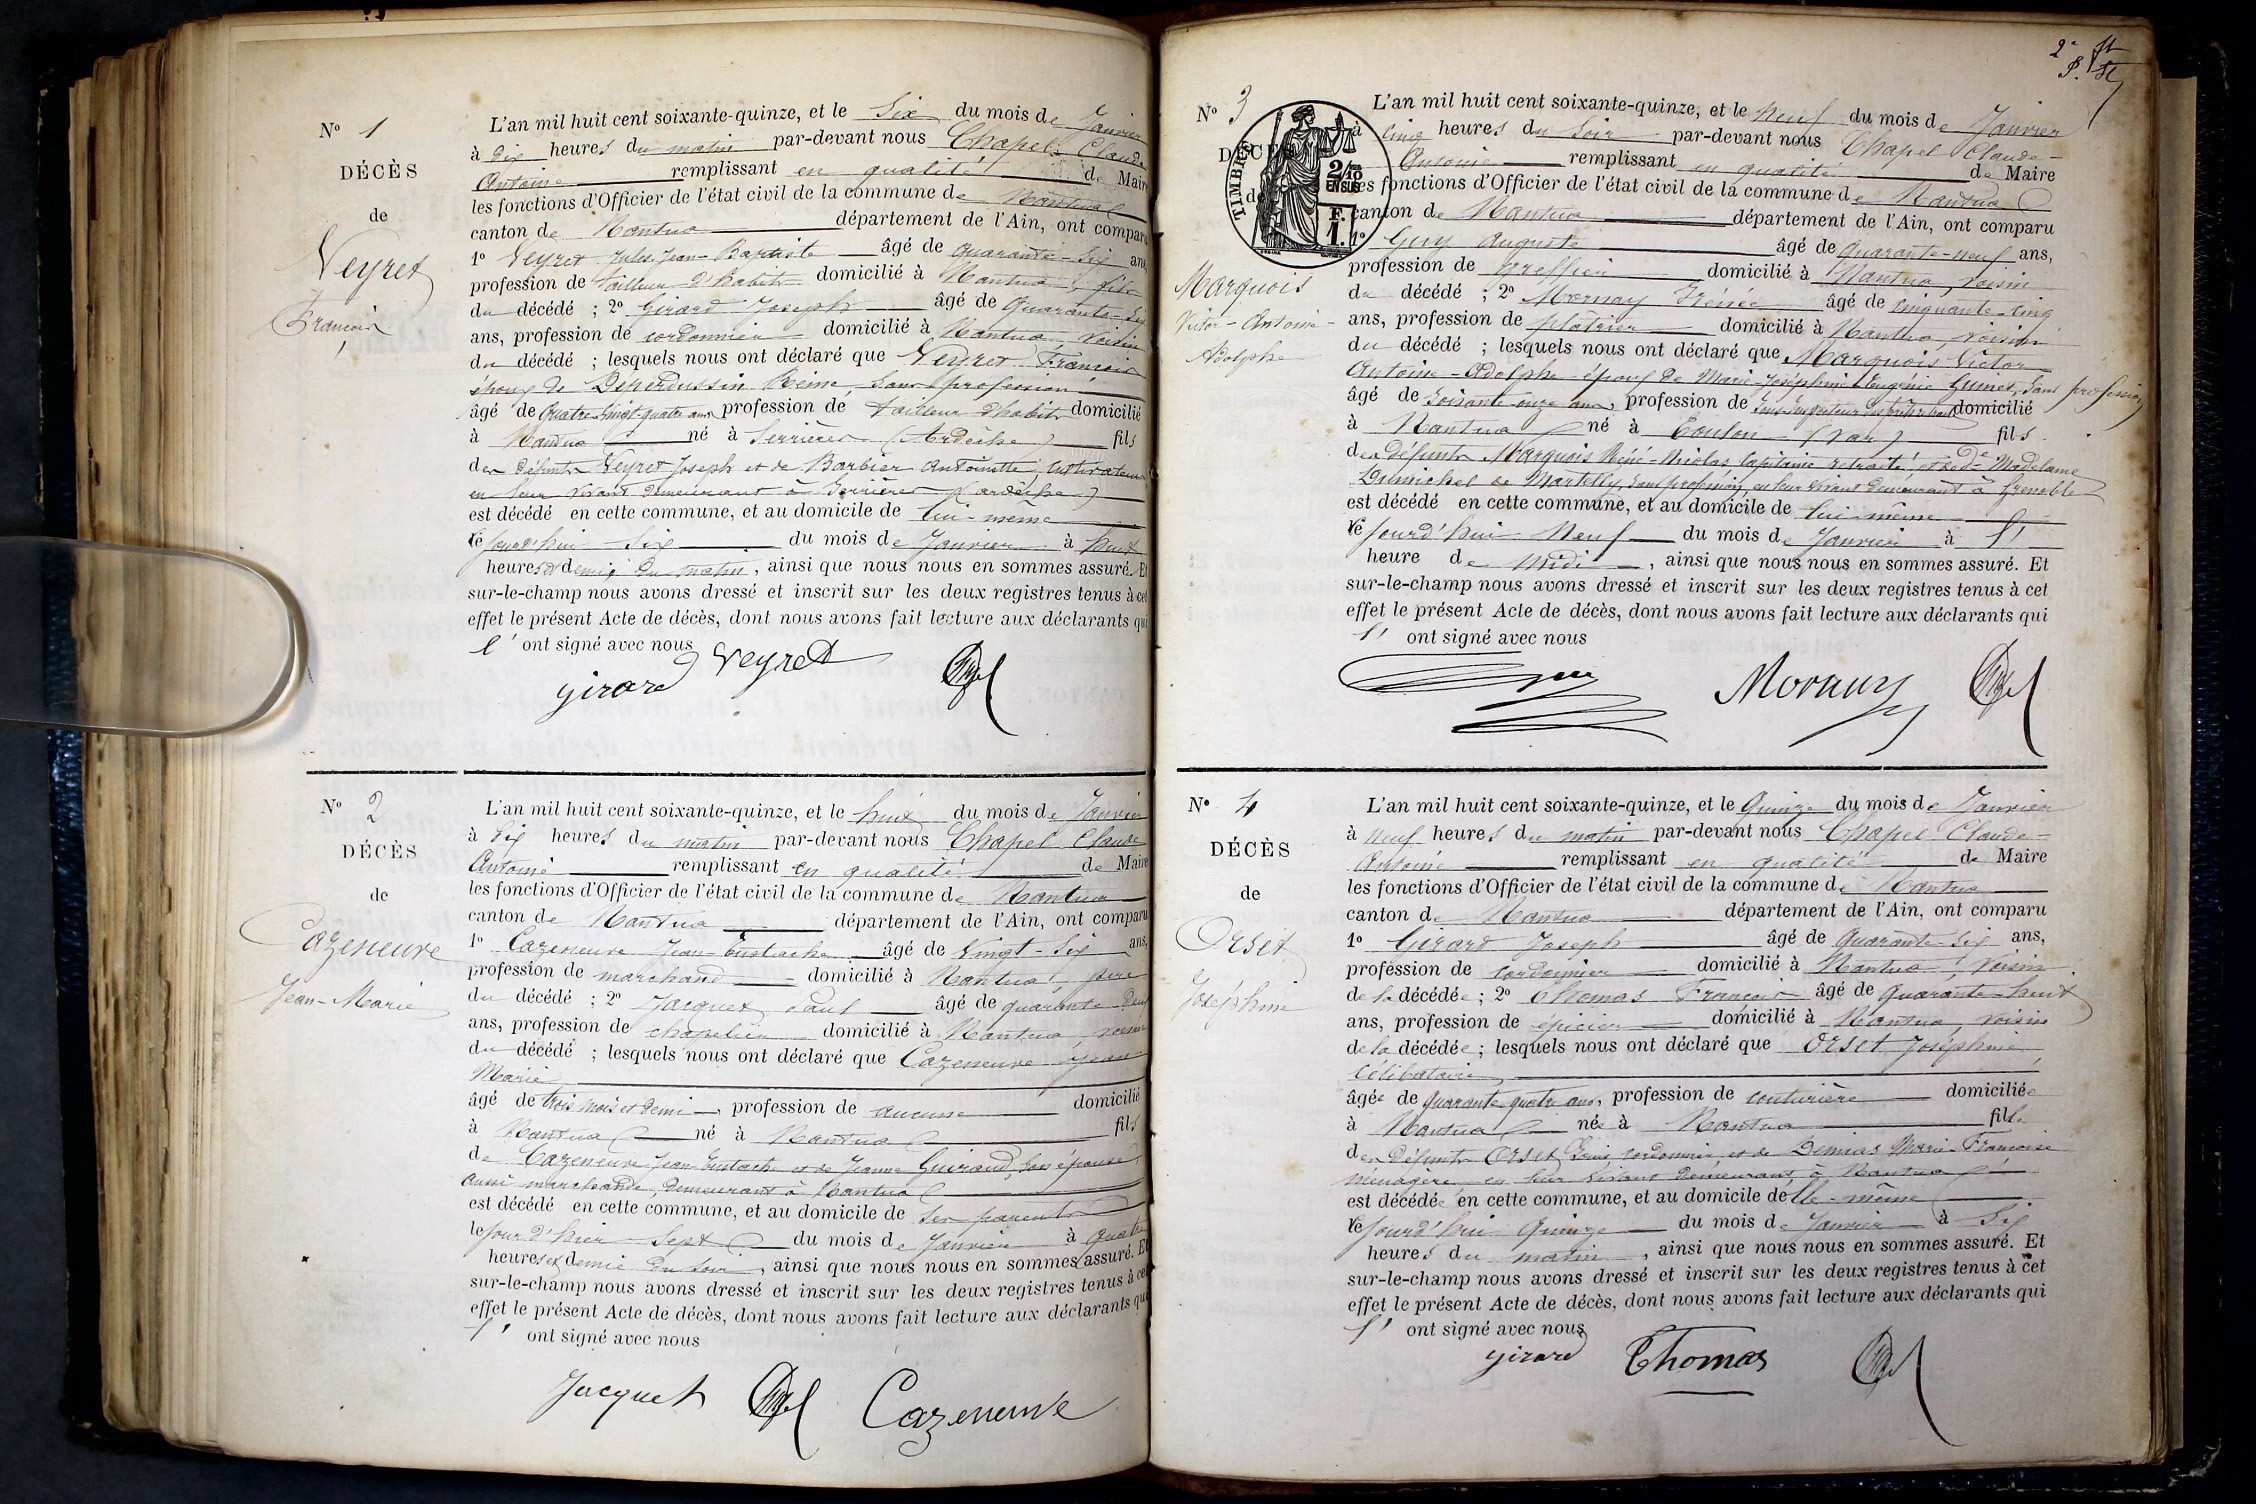 Nº 1
DÉCÈS
de
Veyret
François
L'an mil huit cent soixante-quinze, et le Six du mois de Janvier
à dix heures du matin par-devant nous Chapel Claude
Antoine remplissant en qualité de Maire
les fonctions d'Officier de l'état civil de la commune de Nantua
canton de Nantua département de l'Ain, ont comparu
1º Veyret Jules Jean-Baptiste âgé de quarante-six ans,
profession de tailleur d'habits domicilié à Nantua, fils
du décédé ; 2º Girard Joseph âgé de quarante-six
ans, profession de cordonnier domicilié à Nantua, voisin
du décédé ; lesquels nous ont déclaré que Veyret François
époux de Deperdussin Reine sans profession
âgé de quatre-vingt-quatre ans profession de tailleur d'habits domicilié
à Nantua né à Serrières (Ardèche) fils
des défunts Veyret Joseph et de Barbier Antoinette cultivateurs
en leur vivant demeurant à Serrières (ardèche)
est décédé en cette commune, et au domicile de lui-même
ce jourd'hui six du mois de Janvier à huit
heures et demie du matin, ainsi que nous nous en sommes assuré. Et
sur-le-champ nous avons dressé et inscrit sur les deux registres tenus à cet
effet le présent Acte de décès, dont nous avons fait lecture aux déclarants qui
l' ont signé avec nous
girard Veyret
Nº 2
DÉCÈS
de
Cazeneuve
Jean-Marie
L'an mil huit cent soixante-quinze, et le huit du mois de Janvier
à dix heures du matin par-devant nous Chapel Claude
Antoine remplissant en qualité de Maire
les fonctions d'Officier de l'état civil de la commune de Nantua
canton de Nantua département de l'Ain, ont comparu
1º Cazeneuve Jean-Eustache âgé de vingt-six ans,
profession de marchand domicilié à Nantua, père
du décédé ; 2º Jacquet Paul âgé de quarante-deux
ans, profession de chapelier domicilié à Nantua, voisin
du décédé ; lesquels nous ont déclaré que Cazeneuve Jean
Marie
âgé de trois mois et demi, profession de aucune domicilié
à Nantua né à Nantua fils
de Cazeneuve Jean Eustache et de Jeanne Guiraud, son épouse,
aussi marchande, demeurant à Nantua
est décédé en cette commune, et au domicile de ses parents
le jour d'hier sept du mois de Janvier à quatre
heures et demie du soir, ainsi que nous nous en sommes assuré. Et
sur-le-champ nous avons dressé et inscrit sur les deux registres tenus à cet
effet le présent Acte de décès, dont nous avons fait lecture aux déclarants qui
l' ont signé avec nous
Jacquet Cazeneuve
2e
Nº 3
DÉCÈS
de
TIMBRE
2/10 EN SUS
F. 1.
Marquois
Victor-Antoine-
Adolphe
L'an mil huit cent soixante-quinze, et le Neuf du mois de Janvier
à cinq heures du soir par-devant nous Chapel Claude-
Antoine remplissant en qualité de Maire
les fonctions d'Officier de l'état civil de la commune de Nantua
canton de Nantua département de l'Ain, ont comparu
1º Guy Auguste âgé de quarante-neuf ans,
profession de greffier domicilié à Nantua, voisin
du décédé ; 2º Mornay Irénée âgé de cinquante-cinq
ans, profession de plâtrier domicilié à Nantua, voisin
du décédé ; lesquels nous ont déclaré que Marquois Victor
Antoine-Adolphe époux de Marie-Joséphine-Eugénie Gumet, sans profession
âgé de soixante-onze ans, profession de domicilié
à Nantua né à Toulon (Var) fils
des défunts Marquois René-Nicolas, Capitaine retraité, et de Madelaine
Dumichel de Martelly, sans profession, en leur vivant demeurant à Grenoble
est décédé en cette commune, et au domicile de lui-même
ce jourd'hui Neuf du mois de Janvier à l'
heure de midi, ainsi que nous nous en sommes assuré. Et
sur-le-champ nous avons dressé et inscrit sur les deux registres tenus à cet
effet le présent Acte de décès, dont nous avons fait lecture aux déclarants qui
l' ont signé avec nous
Guy Mornay
Nº 4
DÉCÈS
de
Orset
Joséphine
L'an mil huit cent soixante-quinze, et le Quinze du mois de Janvier
à neuf heures du matin par-devant nous Chapel Claude-
Antoine remplissant en qualité de Maire
les fonctions d'Officier de l'état civil de la commune de Nantua
canton de Nantua département de l'Ain, ont comparu
1º Girard Joseph âgé de quarante-six ans,
profession de cordonnier domicilié à Nantua, voisin
de la décédée ; 2º Thomas François âgé de quarante-huit
ans, profession de épicier domicilié à Nantua, voisin
de la décédée ; lesquels nous ont déclaré que Orset Joséphine
célibataire
âgée de quarante-quatre ans, profession de couturière domiciliée
à Nantua née à Nantua fille
des défunts Orset Louis cordonnier et de Demias Marie-Françoise
ménagère, en leur vivant demeurant à Nantua
est décédée en cette commune, et au domicile de elle-même
ce jourd'hui Quinze du mois de Janvier à six
heures du matin, ainsi que nous nous en sommes assuré. Et
sur-le-champ nous avons dressé et inscrit sur les deux registres tenus à cet
effet le présent Acte de décès, dont nous avons fait lecture aux déclarants qui
l' ont signé avec nous
girard Thomas